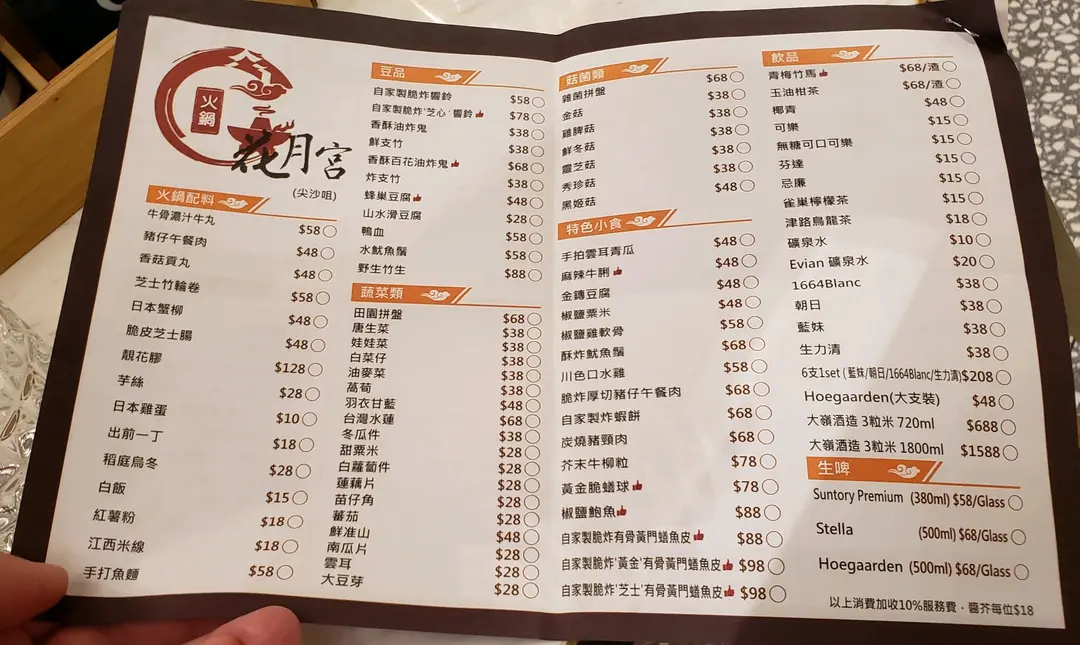 火鍋
花月宮
(尖沙咀)
火鍋配料
牛骨濃汁牛丸 $58
豬仔午餐肉 $48
香菇貢丸 $48
芝士竹輪卷 $58
日本蟹柳 $48
脆皮芝士腸 $48
靚花膠 $128
芋絲 $28
日本雞蛋 $10
出前一丁 $18
稻庭烏冬 $28
白飯 $15
紅薯粉 $18
江西米線 $18
手打魚麵 $58
豆品
自家製脆炸響鈴 $58
自家製脆炸'芝心'響鈴 $78
香酥油炸鬼 $38
鮮支竹 $38
香酥百花油炸鬼 $68
炸支竹 $38
蜂巢豆腐 $48
山水滑豆腐 $28
鴨血 $58
水魷魚鬚 $58
野生竹生 $88
蔬菜類
田園拼盤 $68
唐生菜 $38
娃娃菜 $38
白菜仔 $38
油麥菜 $38
萵筍 $38
羽衣甘藍 $48
台灣水蓮 $68
冬瓜件 $38
甜粟米 $28
白蘿蔔件 $28
蓮藕片 $28
苗仔角 $28
蕃茄 $28
鮮准山 $48
南瓜片 $28
雲耳 $28
大豆芽 $28
菇菌類
雜菌拼盤 $68
金菇 $38
雞脾菇 $38
鮮冬菇 $38
靈芝菇 $38
秀珍菇 $38
黑姬菇 $48
特色小食
手拍雲耳青瓜 $48
麻辣牛脷 $48
金鏄豆腐 $48
椒鹽粟米 $48
椒鹽雞軟骨 $58
酥炸魷魚鬚 $68
川色口水雞 $58
脆炸厚切豬仔午餐肉 $68
自家製炸蝦餅 $68
炭燒豬頸肉 $68
芥末牛柳粒 $78
黃金脆蟮球 $78
椒鹽鮑魚 $88
自家製脆炸有骨黃門蟮魚皮 $88
自家製脆炸'黃金'有骨黃門蟮魚皮 $98
自家製脆炸'芝士'有骨黃門蟮魚皮 $98
飲品
青梅竹馬 $68/渣
玉油柑茶 $68/渣
椰青 $48
可樂 $15
無糖可口可樂 $15
芬達 $15
忌廉 $15
雀巢檸檬茶 $15
津路烏龍茶 $18
礦泉水 $10
Evian 礦泉水 $20
1664Blanc $38
朝日 $38
藍妹 $38
生力清 $38
6支1set ( 藍妹/朝日/1664Blanc/生力清) $208
Hoegaarden(大支裝) $48
大嶺酒造 3粒米 720ml $688
大嶺酒造 3粒米 1800ml $1588
生啤
Suntory Premium (380ml) $58/Glass
Stella (500ml) $68/Glass
Hoegaarden (500ml) $68/Glass
以上消費加收10%服務費，醬芥每位$18